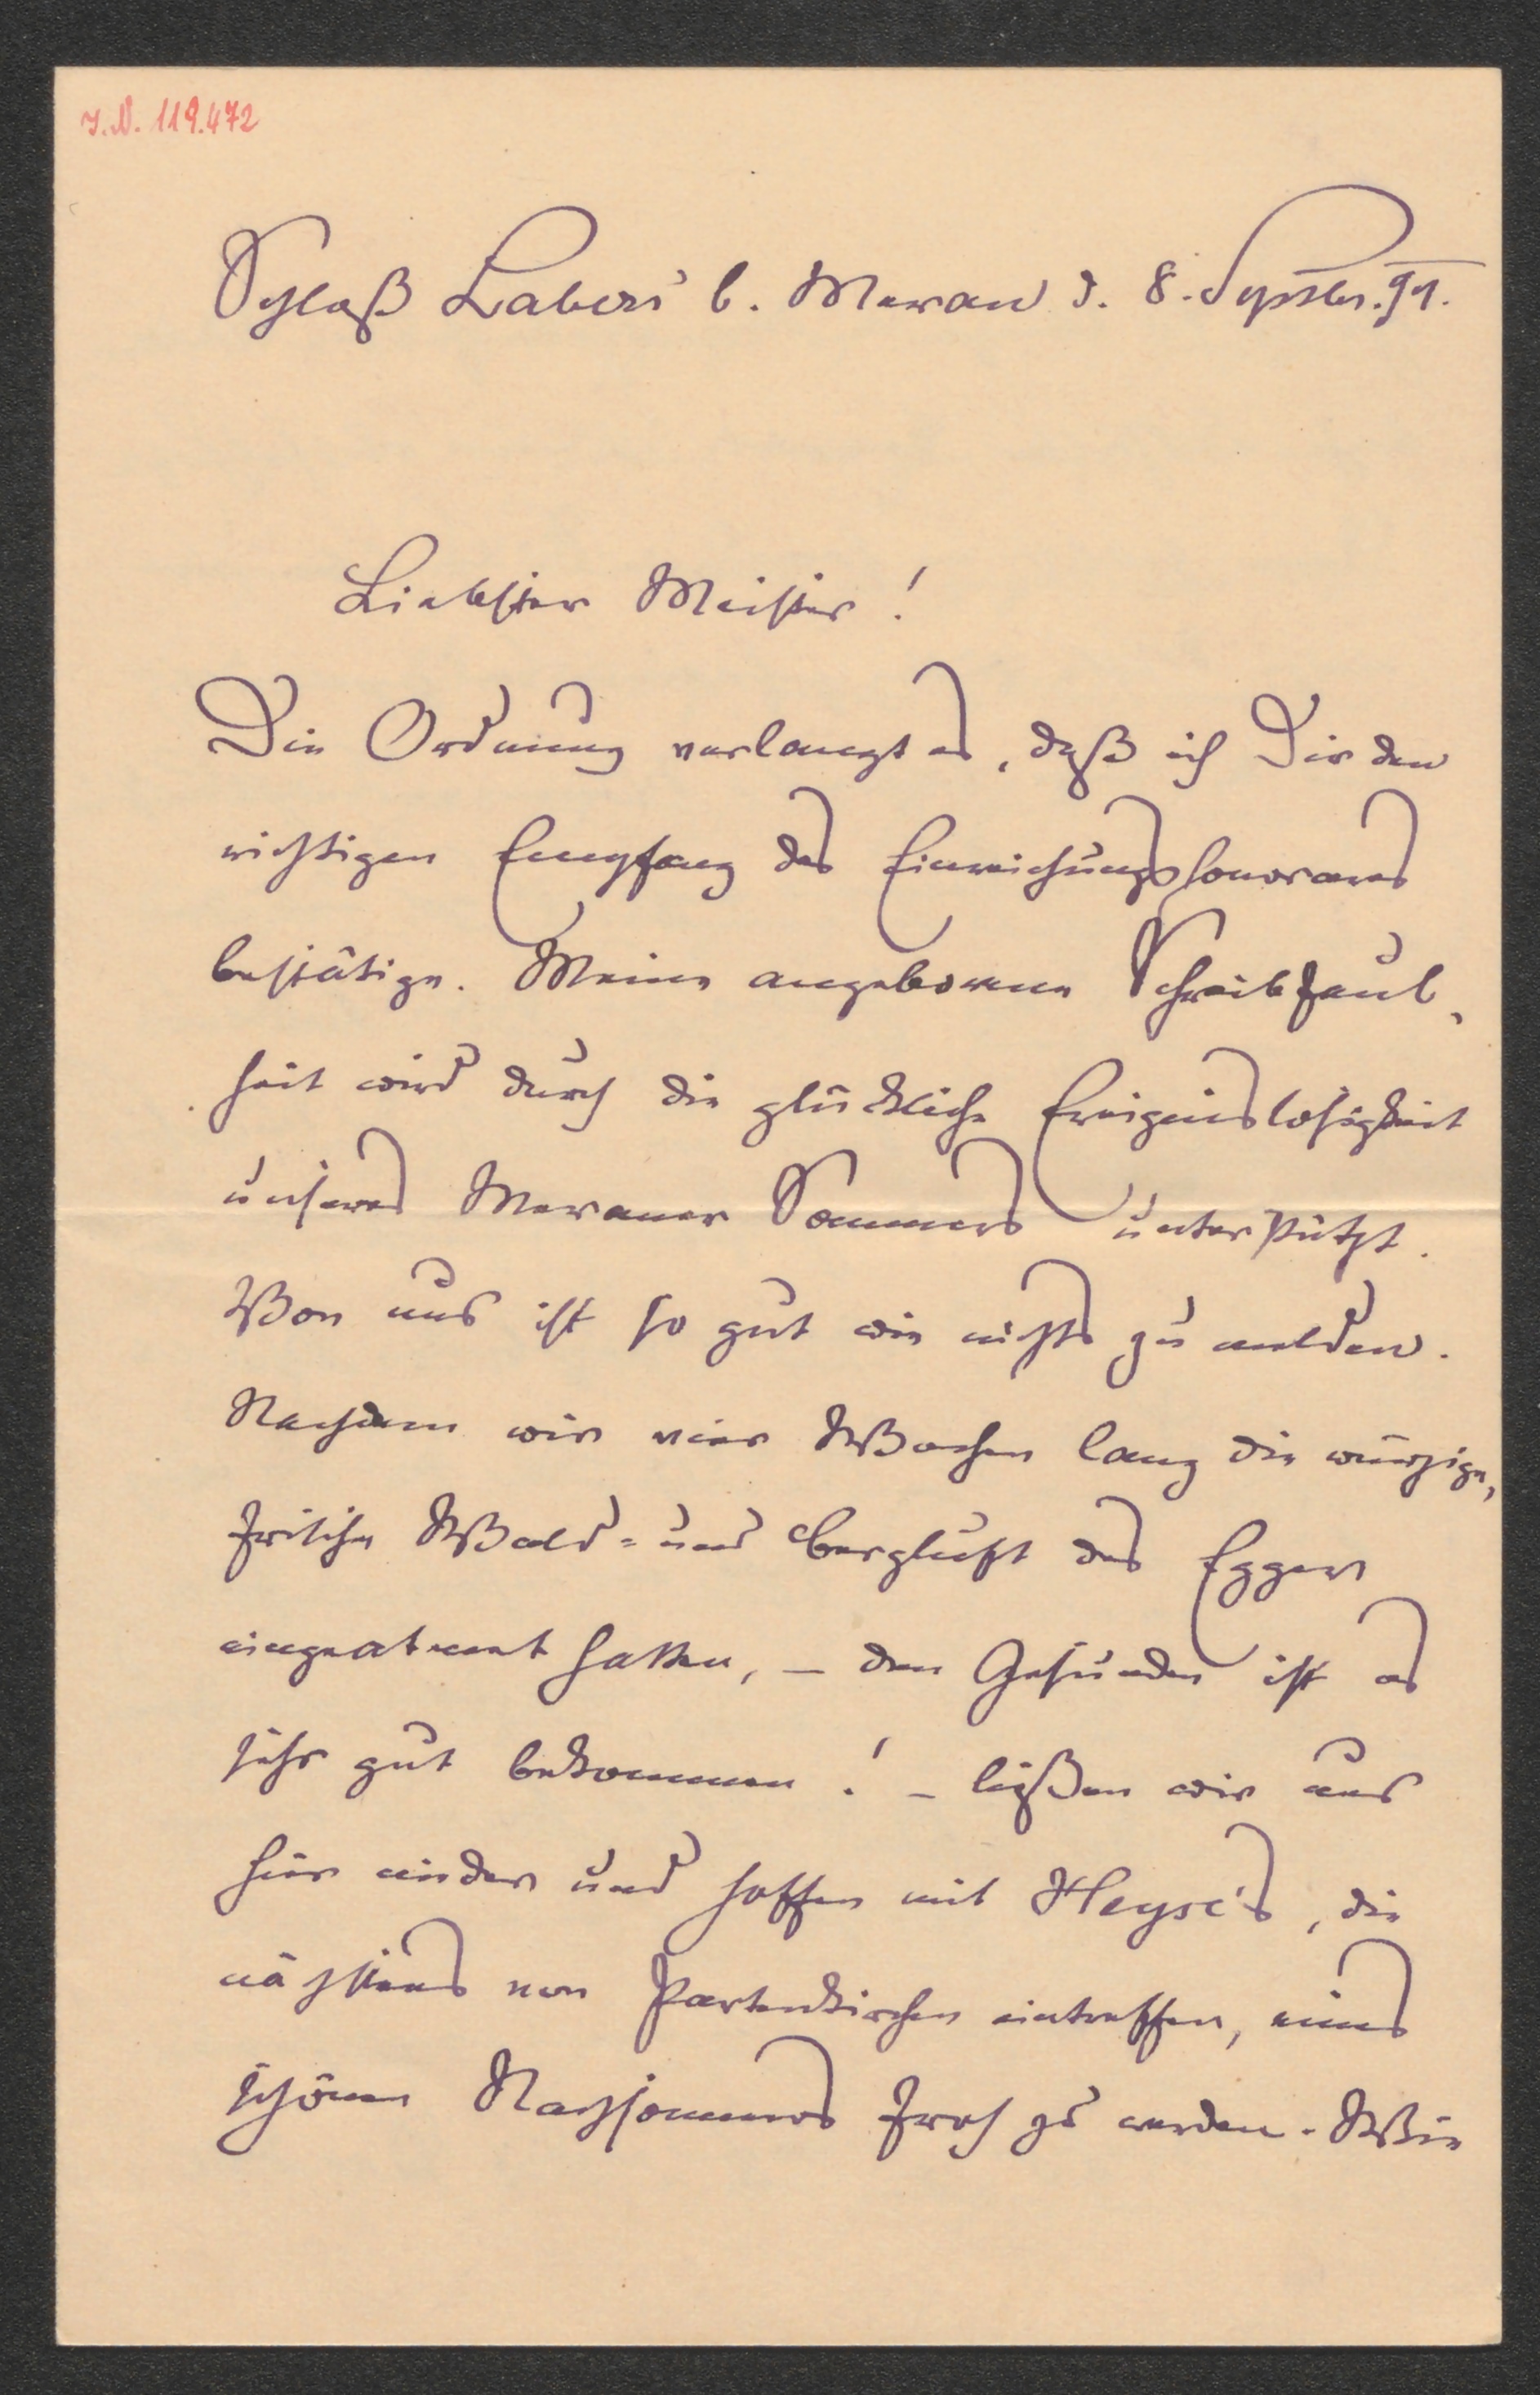 I.N. 119.472
Schloß Labers b. Meran d. 8. Septbr. 91.
Liebster Meister!
Die Ordnung verlangt es, daß ich Dir den
richtigen Empfang des Einreichungshonorares
bestätige. Meine angeborene Schreibfaul-
heit wird durch die glückliche Ereignislosigkeit
unseres Meraner Sommers unterstützt.
Von uns ist so gut wie nichts zu melden.
Nachdem wir vier Wochen lang die würzige,
frische Wald- und Bergluft des Eggers
eingeatmet hatten, – den Gesunden ist es
sehr gut bekommen! – ließen wir uns
hier nieder und hoffen mit Heyse's, die
nächstens von Partenkirchen eintreffen, eines
schönen Nachsommers froh zu werden. Wie